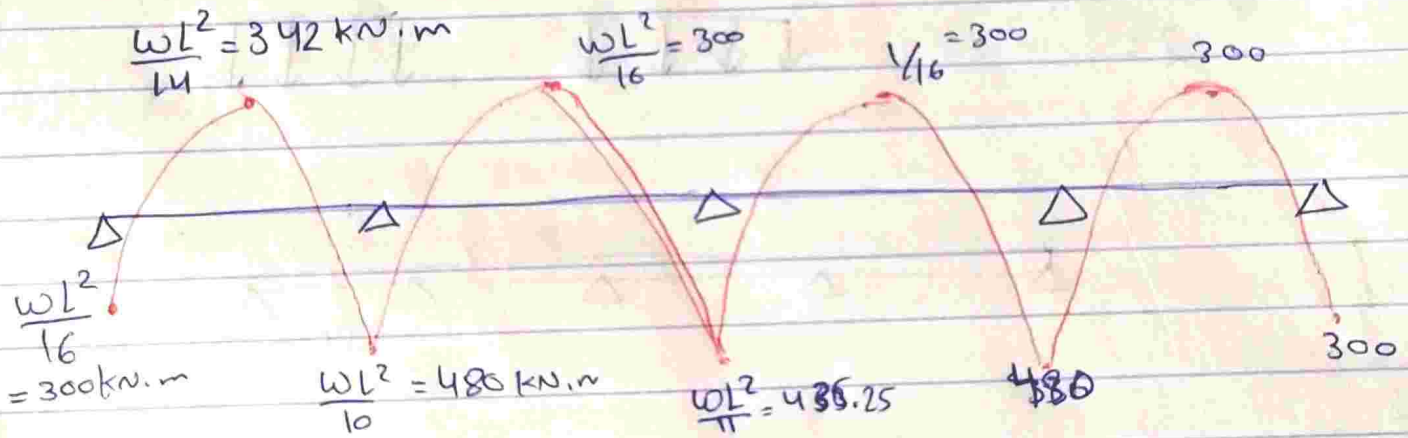 ωL²/14 = 342 kN.m
ωL²/16 = 300
1/16 = 300
300
ωL²/16 = 300kN.m
ωL²/10 = 480 kN.m
ωL²/11 =
480
300